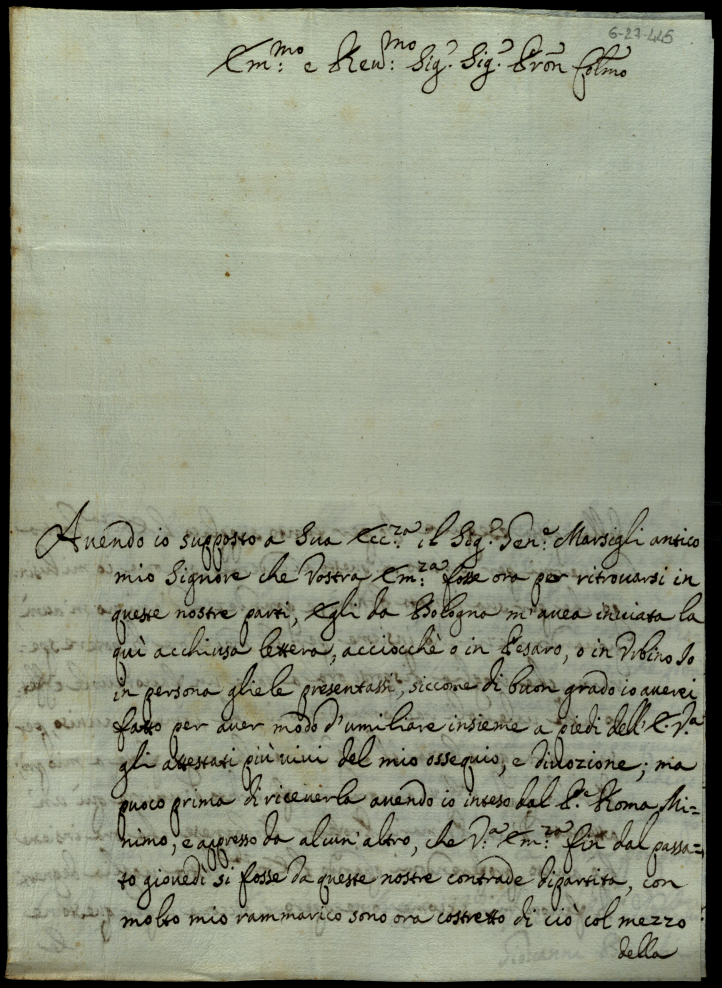 6-27-445
Em.mo e Rev.mo Sig.r Sig.r Pron Colmo
Avendo io supposto a Sua Ecc.za il Sig.r Gen.e Marsigli antico
mio Signore che Vostra Em.za fosse ora per ritrovarsi in
queste nostre parti, Egli da Bologna m'avea inviata la
quì acchiusa lettera, acciocchè o in Pesaro, o in Urbino Io
in persona gliele presentassi, siccome di buon grado io averei
fatto per aver modo d'umiliare insieme a piedi dell'E. V.a
gli attestati più vivi del mio ossequio, e divozione; ma
puoco prima di riceverla avendo io inteso dal P.e Roma Mi=
nimo, e appresso da alcun'altro, che V.a Em.za fin dal passa=
to giovedì si fosse da queste nostre contrade dipartita, con
molto mio rammarico sono ora costretto di ciò col mezzo
della